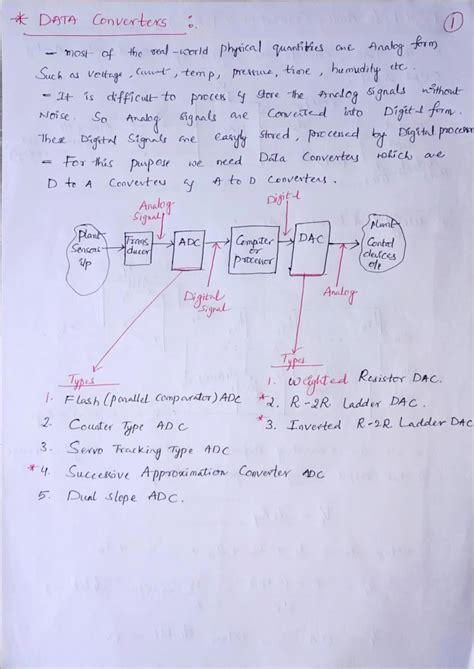 * DATA Converters :.
1
- most of the real-world physical quantities are Analog form
Such as voltage, current, temp, pressure, time, humudity etc.
- It is difficult to process & store the Analog Signals without
Noise. So Analog signals are Converted into Digital form.
These Digital Signals are easyly stored, processed by Digital processor
- For this purpose we need Data Converters which are
D to A Converters & A to D Converters.
Analog
Signal
Digital
Plant
Sensors
i/p
Trans
ducer
ADC
Computer
or
processor
DAC
Plant
Control
devices
o/p
Digital
Signal
Analog
Types
1. Flash (parallel comparator) ADC
2. Counter Type ADC
3. Servo Tracking Type ADC
*4. Successive Approximation Converter ADC
5. Dual slope ADC.
Types
1. Weighted Resistor DAC.
*2. R-2R Ladder DAC.
*3. Inverted R-2R Ladder DAC